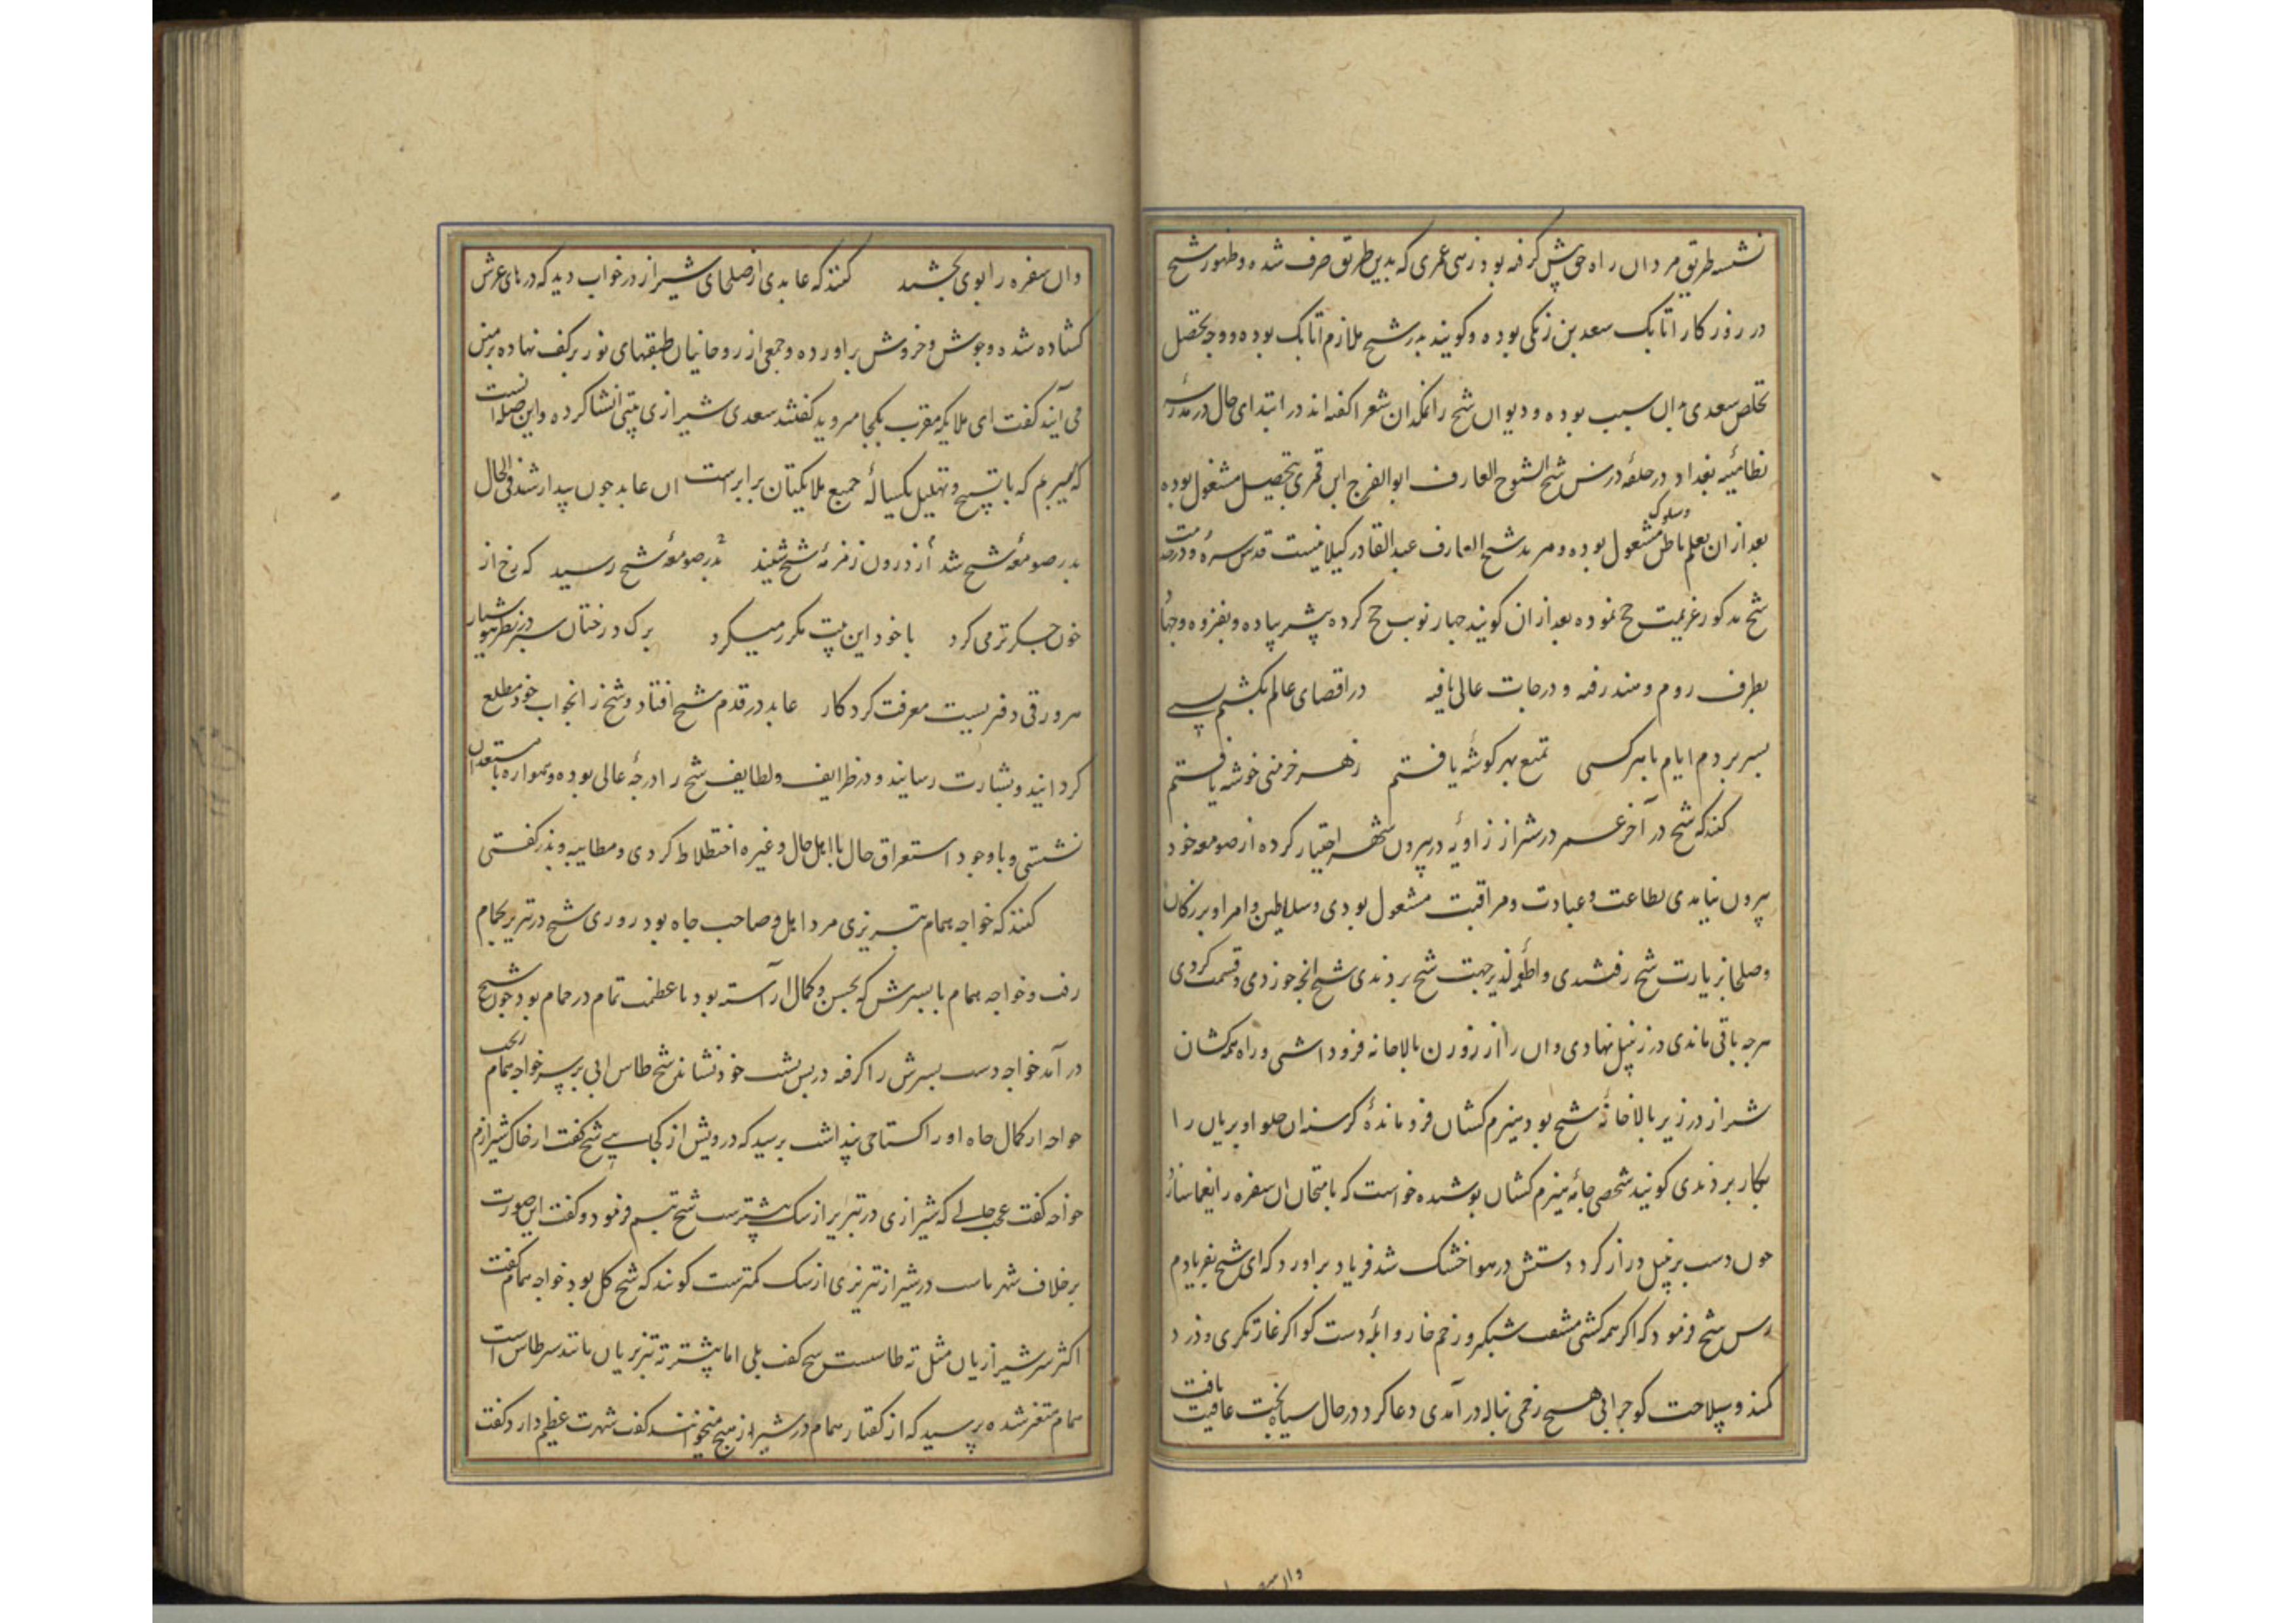 نشسته طریق مردان راه حق پیش گرفته بود زهی عمری که بدین طریق صرف شده و ظهور شیخ
در روزکار اتابک سعد بن زنکی بوده و کویند پدر شیخ ملازم اتابک بوده و وجه تحصل
تخلص سعدی بدان سبب بوده و دیوان شیخ را نمکدان شعرا کفته اند در ابتدای حال در مدرسه
نظامیّه بغداد در حلقه درس شیخ الشیوخ العارف ابو الفرج ابن بتحصیل مشغول بوده
بعد از ان بعلم باطن و سلوک مشغول بوده و مرید شیخ العارف عبد القادر کیلانیست قدس سره و در خدمت
شیخ مذکور عزیمت حج نموده بعد از ان کویند چهار نوبت حج کرده بیشتر پیاده و بغزو و جهاد
بطرف روم و هند رفته و درجات عالی یافته در اقصای عالم بکشتم بسی
بسر بردم ایام با هر کسی تمتع بهر کوشه یافتم ز هر خرمنی خوشه یافتم
کنند که شیخ در آخر عمر در شیراز زاویه در بیرون شهر اختیار کرده از صومعه خود
بیرون نیامدی بطاعت و عبادت و مراقبت مشغول بودی و سلاطین و امرا و بزرکان
و صلحا بزیارت شیخ رفتندی و اطعمه لذیذ جهت شیخ بردندی شیخ انچه خوردی و قسمت کردی
هرچه باقی ماندی در زنبیل نهادی و ان را از روزن بالاخانه فرود اشتی و راه همه کشان
شیراز در زیر بالاخانه شیخ بود هیزم کشان فرو مانده کرسنه ان حلوا و بریان را
بکار بردندی کویند شخصی جامه هیزم کشان پوشیده خواست که بامتحان ان سفره را یغما سازد
چون دست بزنبیل دراز کرد دستش در هوا خشک شد فریاد براورد که ای شیخ بفریادم
رس شیخ فرمود که اکر همه کشی مشقت شبکیر و زخم خار و ابله دست کو اکر غارتکری و دزد
کمند و سلاحت کو جرا بی هیچ زخمی بناله در آمدی دعا کرد در حال سیاه بخت عافیت یافت
وان سفره را بوی بخشید کنند که عابدی از صلحای شیراز در خواب دید که درهای عرش
کشاده شده و جوش و خروش براورده و جمعی از روحانیان طبقهای نور بر کف نهاده بزمین
می آیند کفت ای ملایکه مقرب بکجا میروید کفتند سعدی شیرازی بیتی انشا کرده و این صله انست
که میبریم که با تسبیح و تهلیل یکساله جمیع ملایکتان برابر است ان عابد چون بیدار شد فی الحال
بدر صومعه شیخ شد از درون زمزمه شیخ شنید بدر صومعه شیخ رسید که رخ از
خون جکر تر می کرد با خود این بیت مکرر میکرد برک درختان سبز در نظر هوشیار
هر ورقی دفتریست معرفت کردکار عابد در قدم شیخ افتاد و شیخ را از انخواب خود مطلع
کردانید و بشارت رسانید و در ظرایف و لطایف شیخ را درجه عالی بوده و همواره با مستعدان
نشستی و با وجود استغراق حال با اهل حال و غیره اختلاط کردی و مطایبه و بذر کفتی
کنند که خواجه همام تبریزی مرد اهل و صاحب جاه بود روزی شیخ در تبریز بحمام
رفت و خواجه همام با پسرش که بحسن و کمال اراسته بود با عظمت تمام در حمام بود چون شیخ
در آمد خواجه دست پسرش را کرفته در پس پشت خود نشاند شیخ طاس ابی بر سر خواجه همام ریخت
خواجه از کمال جاه او را کستاخی پنداشت پرسید که درویش از کجایی شیخ کفت از خاک شیرازم
خواجه کفت عجب حالی که شیرازی در تبریز از سک بیشترست شیخ تبسم فرمود و کفت این صورت
بر خلاف شهر ماست در شیراز تبریزی از سک کمترست کویند که شیخ کل بود خواجه همام کفت
اکثر سر شیرازیان مثل ته طاسست شیخ کفت بلی اما بیشتر ته تبریزیان مانند سر طاس است
همام متغیر شده پرسید که از کفتار همام در شیراز هیچ میخوانند کفت شهرت عظیم دارد کفت